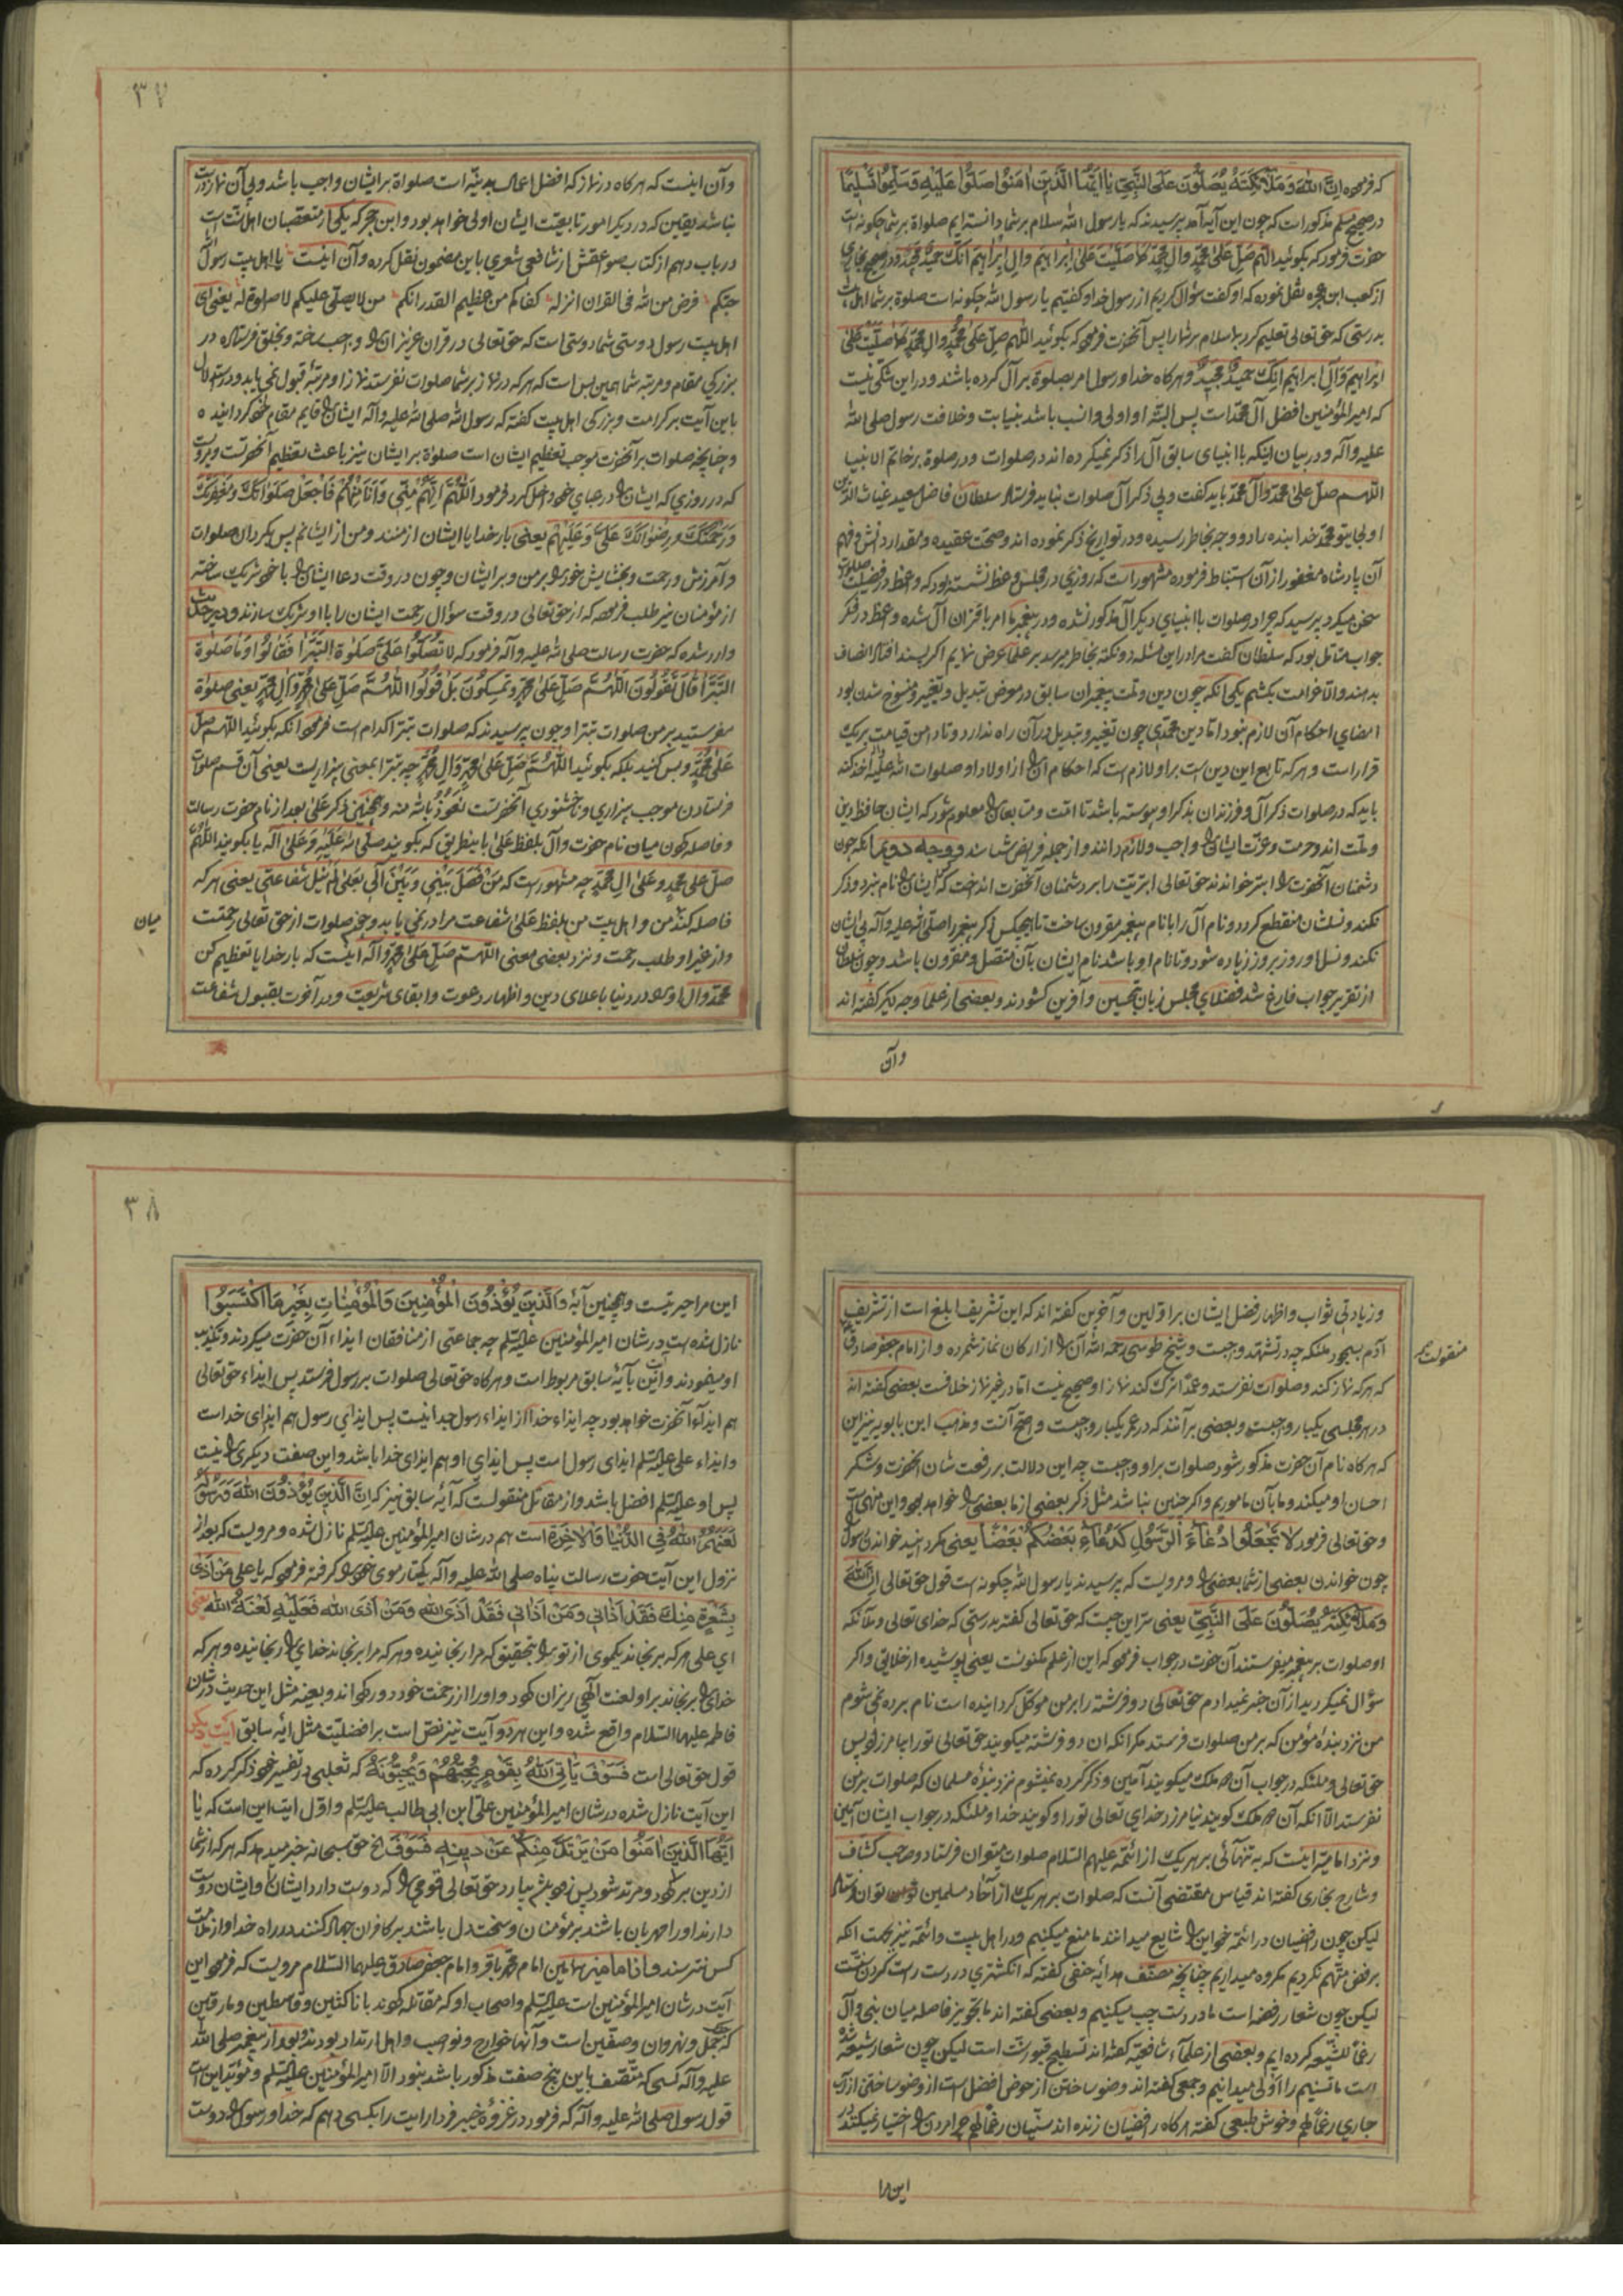 که فرموده ان الله وملائکته یصلون علی النبی یا ایها الذین امنوا صلوا علیه وسلموا تسلیما
در صحیح مسلم مذکور است که چون این آیه آمد پرسیدند که یا رسول الله سلام بر شما دانسته ایم صلواة بر شما چکونه است
حضرت فرمود که بکوئید اللهم صل علی محمد وال محمد کما صلیت علی ابراهیم وال ابراهیم انک حمید مجید و در صحیح بخاری
از کعب ابن عجره نقل نموده که او کفت سؤال کردیم از رسول خدا و کفتیم یا رسول الله چکونه است صلوة بر شما اهل بیت
بدرستی که حق تعالی تعلیم کرد بما سلام بر شما را پس آنحضرت فرموده که بکوئید اللهم صل علی محمد وال محمد کما صلیت علی
ابراهیم وآل ابراهیم انک حمید مجید و هرکاه خدا و رسول امر بصلوة بر آل کرده باشند و در این شکی نیست
که امیر المؤمنین افضل آل محمد است پس البته او اولی و انسب باشد بنیابت و خلافت رسول صلی الله
علیه وآله و در بیان اینکه با انبیای سابق آل را ذکر نمیکرده اند در صلوات و در صلوة بر خاتم الانبیا
اللهم صل علی محمد وآل محمد باید کفت و بی ذکر آل صلوات نباید فرستاد سلطان فاضل سعید غیاث الدین
اولجایتو محمد خدابنده را دو وجه بخاطر رسیده و در تواریخ ذکر نموده اند و صحت عقیده و مقدار دانش و فهم
آن پادشاه مغفور از آن استنباط فرموده مشهور است که روزی در مجلس وعظ نشسته بود که واعظ در فضیلت صلوات
سخن میکرد پرسید که چرا در صلوات با انبیای دیکر آل مذکور نشده و در پیغمبر ما امر باقتران آل شده واعظ در فکر
جواب متامل بود که سلطان کفت مرا در این مسئله دو نکته بخاطر میرسد بر علما عرض نمایم اکر پسند افتد انصاف
بدهند والا خرامت بکشم یکی انکه چون دین و ملت پیغمبران سابق در معرض تبدیل و تغییر و منسوخ شدن بود
امضای احکام آن لازم نبود اما دین محمدی چون تغییر و تبدیل در آن راه ندارد و تا دامن قیامت بر یک
قرار است و هر که تابع این دین است بر او لازم است که احکام آن را از اولاد او صلوات الله علیهم اخذ کند
باید که در صلوات ذکر آل و فرزندان بذکر او پیوسته باشد تا امت و متابعان را معلوم شود که ایشان حافظ دین
و ملت اند و حرمت و عزت ایشان را واجب و لازم دانند و از جمله فرایض شناسند و وجه دوم انکه چون
دشمنان آنحضرت را ابتر خواندند حق تعالی ابتریت را بر دشمنان آنحضرت انداخت که ایشان را نام نبرد و ذکر
نکند و نسلشان منقطع کردد و نام آل را با نام پیغمبر مقرون ساخت تا هیچکس ذکر پیغمبر را صلی الله علیه وآله بی ایشان
نکند و نسل او روز بروز زیاده شود و تا نام او باشد نام ایشان بآن متصل و مقرون باشد و چون سلطان
از تقریر جواب فارغ شد فضلای مجلس زبان بتحسین و آفرین کشودند و بعضی از علما وجه دیکر کفته اند
وآن
۳۷
وآن اینست که هرکاه در نماز که افضل اعمال بدنیه است صلواة بر ایشان واجب باشد و بی آن نماز درست
نباشد یقین که در دیکر امور تابعیت ایشان اولی خواهد بود و ابن حجر که یکی از متعصبان اهل سنت است
در باب دهم از کتاب صواعقش از شافعی شعری باین مضمون نقل کرده و آن اینست یا اهل بیت رسول الله
حبکم فرض من الله فی القران انزله کفاکم من عظیم القدر انکم من لا یصلی علیکم لا صلوة له یعنی ای
اهل بیت رسول دوستی شما دوستی است که حق تعالی در قران عزیز ان را واجب ساخته و بخلق فرستاده در
بزرکی مقام و مرتبه شما همین بس است که هر که در نماز بر شما صلوات نفرستد نماز او مرتبه قبول نمی یابد و در استدلال
باین آیت بر کرامت و بزرکی اهل بیت کفته که رسول الله صلی الله علیه وآله ایشان را قایم مقام خود کردانیده
و چنانچه صلوات بر آنحضرت موجب تعظیم ایشان است صلواة بر ایشان نیز باعث تعظیم آنحضرت است و مرویست
که در روزی که ایشان را در عبای خود داخل کرد فرمود اللهم انهم منی وانا منهم فاجعل صلواتک ومغفرتک
ورحمتک ورضوانک علی وعلیهم یعنی بار خدایا ایشان از منند و من از ایشانم پس بکردان صلوات
و آمرزش و رحمت و بخشایش خود را بر من و بر ایشان و چون در وقت دعا ایشان را با خود شریک ساخته
از مؤمنان نیز طلب فرموده که از حق تعالی در وقت سؤال رحمت ایشان را با او شریک سازند و در حدیث
وارد شده که حضرت رسالت صلی الله علیه وآله فرمود که لا تصلوا علی صلوة البترا فقالوا وما صلوة
البترا قال تقولون اللهم صل علی محمد وتمسکون بل قولوا اللهم صل علی محمد وآل محمد یعنی صلوة
مفرستید بر من صلوات بترا و چون پرسیدند که صلوات بترا کدام است فرمود انکه بکوئید اللهم صل
علی محمد و بس کنید بلکه بکوئید اللهم صل علی محمد وال محمد چه بترا بمعنی بیزاریست یعنی آن قسم صلوات
فرستادن موجب بیزاری و ناخشنودی آنحضرتست نعوذ بالله منه و همچنین ذکر علی بعد از نام حضرت رسالت
و فاصله کردن میان نام حضرت وآل بلفظ علی باینطریق که بکویند صلی الله علیه وعلی آله یا بکویند اللهم
صل علی محمد وعلی ال محمد چه مشهور است که من فصل بینی وبین آلی بعلی لم ینل شفاعتی یعنی هر که
فاصله کند من و اهل بیت من بلفظ علی شفاعت مرا در نمی یابد و صلوات از حق تعالی رحمتست
میان
و از غیر او طلب رحمت و نزد بعضی معنی اللهم صل علی محمد وآله اینست که بار خدایا تعظیم کن
محمد وال او را در دنیا باعلای دین و اظهار دعوت و ابقای شریعت و در آخرت بقبول شفاعت
و زیادتی ثواب و اظهار فضل ایشان بر اولین و آخرین کفته اند که این تشریف ابلغ است از تشریف
آدم بسجود ملئکه چه در تشهد واجبست و شیخ طوسی رحمه الله آن را از ارکان نماز شمرده و از امام جعفر صادق
منقولست
که هر که نماز کند و صلوات نفرستد و عمدا ترک کند نماز او صحیح نیست اما در غیر نماز خلافست بعضی کفته اند
در هر مجلسی یکبار واجبست و بعضی بر آنند که در عمر یکبار واجبست و اصح آنست و مذهب ابن بابویه نیز این
که هرکاه نام آن حضرت مذکور شود صلوات بر او واجبست چه این دلالت بر رفعت شان انحضرت و شکر
احسان او میکند و ما بآن ماموریم و اکر چنین نباشد مثل ذکر بعضی از ما بعضی را خواهد بود و این منهی است
و حق تعالی فرمود لا تجعلوا دعاء الرسول کدعاء بعضکم بعضا یعنی مکردانید خواندن رسول
چون خواندن بعضی از شما بعضی را و مرویست که پرسیدند یا رسول الله چکونه است قول حق تعالی ان الله
وملائکته یصلون علی النبی یعنی سر این چیست که حق تعالی کفته بدرستی که خدای تعالی و ملآئکه
او صلوات بر پیغمبر میفرستند آن حضرت در جواب فرموده که این از علم مکنونست یعنی پوشیده از خلایق و اکر
سؤال نمیکردید از آن خبر نمیدادم حق تعالی دو فرشته را بر من موکل کردانیده است نام برده نمی شوم
من نزد بندهٔ مؤمن که بر من صلوات فرستد مکر انکه ان دو فرشته میکویند حق تعالی تو را بیامرزد پس
حق تعالی و ملئکه در جواب آن دو ملک میکویند آمین و ذکر کرده نمیشوم نزد بندهٔ مسلمان که صلوات بر من
نفرستد الا انکه آن دو ملک کویند نیامرزد خدای تعالی تو را و کویند خدا و ملئکه در جواب ایشان آمین
و نزد امامیه اینست که به تنهائی بر هر یک از ائمه علیهم السلام صلوات میتوان فرستاد و صاحب کشاف
و شارح بخاری کفته اند قیاس مقتضی آنست که صلوات بر هر یک از آحاد مسلمین توان فرستاد
لیکن چون رافضیان در ائمه خود این را شایع میدانند ما منع میکنیم و در اهل بیت و ائمه نیز بجهت انکه
برفض متهم نکردیم مکروه میداریم چنانچه مصنف هدایه حنفی کفته که انکشتری در دست راست کردن سنت است
لیکن چون شعار رفضه است ما در دست چپ میکنیم و بعضی کفته اند ما تجویز فاصله میان نبی و آل
رغما للشیعه کرده ایم و بعضی از علماء شافعیه کفته اند تسطیح قبور سنت است لیکن چون شعار شیعه شده
است ما تسنیم را اولی میدانیم و جمعی کفته اند وضو ساختن از حوض افضل است از وضو ساختن از آب
جاری رغما لهم و خوش طبعی کفته هرکاه رافضیان زنده اند سنیان رغما لهم چرا مردن را اختیار نمیکنند
این را
۳۸
این مراحیر نیست و همچنین آیه والذین یؤذون المؤمنین والمؤمنات بغیر ما اکتسبوا
نازل شده است در شان امیر المؤمنین علیه السلم چه جماعتی از منافقان ایذاء آن حضرت میکردند و تکذیب
او مینمودند و این بآیه سابق مربوط است و هرکاه حق تعالی صلوات بر رسول فرستد پس ایذاء حق تعالی
هم ایذآء آنحضرت خواهد بود چه ایذاء خدا از ایذاء رسول جدا نیست پس ایذای رسول هم ایذای خداست
و ایذاء علی علیه السلم ایذای رسول است پس ایذای او هم ایذای خدا باشد و این صفت دیکری را نیست
پس او علیه السلم افضل باشد و از مقاتل منقولست که آیه سابق نیز که ان الذین یؤذون الله ورسوله
لعنهم الله فی الدنیا والاخرة است هم در شان امیر المؤمنین علیه السلم نازل شده و مرویست که بعد از
نزول این آیت حضرت رسالت پناه صلی الله علیه وآله یکتار موی خود را کرفته فرموده که یا علی من اذی
بشعرة منک فقد اذانی ومن اذانی فقد اذی الله ومن اذی الله فعلیه لعنة الله یعنی
ای علی هر که برنجاند یکموی از تو را بتحقیق که مرا رنجانیده و هر که مرا برنجاند خدای را رنجانیده و هر که
خدای را برنجاند بر او لعنت الهی ریزان کردد و او را از رحمت خود دور کرداند و بعینه مثل این حدیث در شان
فاطمه علیها السلام واقع شده و این هر دو آیت نیز نص است بر افضلیت مثل آیه سابق آیت دیکر
قول حق تعالی است فسوف یاتی الله بقوم یحبهم ویحبونه که ثعلبی در تفسیر خود ذکر کرده که
این آیت نازل شده در شان امیر المؤمنین علی ابن ابی طالب علیه السلم و اول ایت این است که یا
ایها الذین امنوا من یرتد منکم عن دینه فسوف الخ حق سبحانه خبر میدهد که هر که از شما
از دین بر کردد و مرتد شود پس زود باشد بیارد حق تعالی قومی را که دوست دارد ایشان را و ایشان دوست
دارند او را مهربان باشند بر مؤمنان و سخت دل باشند بر کافران جهاد کنند در راه خدا و از ملامت
کس نترسند و امامین همامین امام محمد باقر و امام جعفر صادق علیهما السلام مرویست که فرموده این
آیت در شان امیر المؤمنین است علیه السلم و اصحاب او که مقاتله کردند با ناکثین و قاسطین و مارقین
که جمل و نهروان و صفین است و آنها خوارج و نواصب و اهل ارتداد بودند و بعد از پیغمبر صلی الله
علیه وآله کسی که متصف باین پنج صفت مذکور باشد نبود الا امیر المؤمنین علیه السلم و مؤید این است
قول رسول صلی الله علیه وآله که فرمود در غزوهٔ خیبر فردا رایت را بکسی دهم که خدا و رسول را دوست